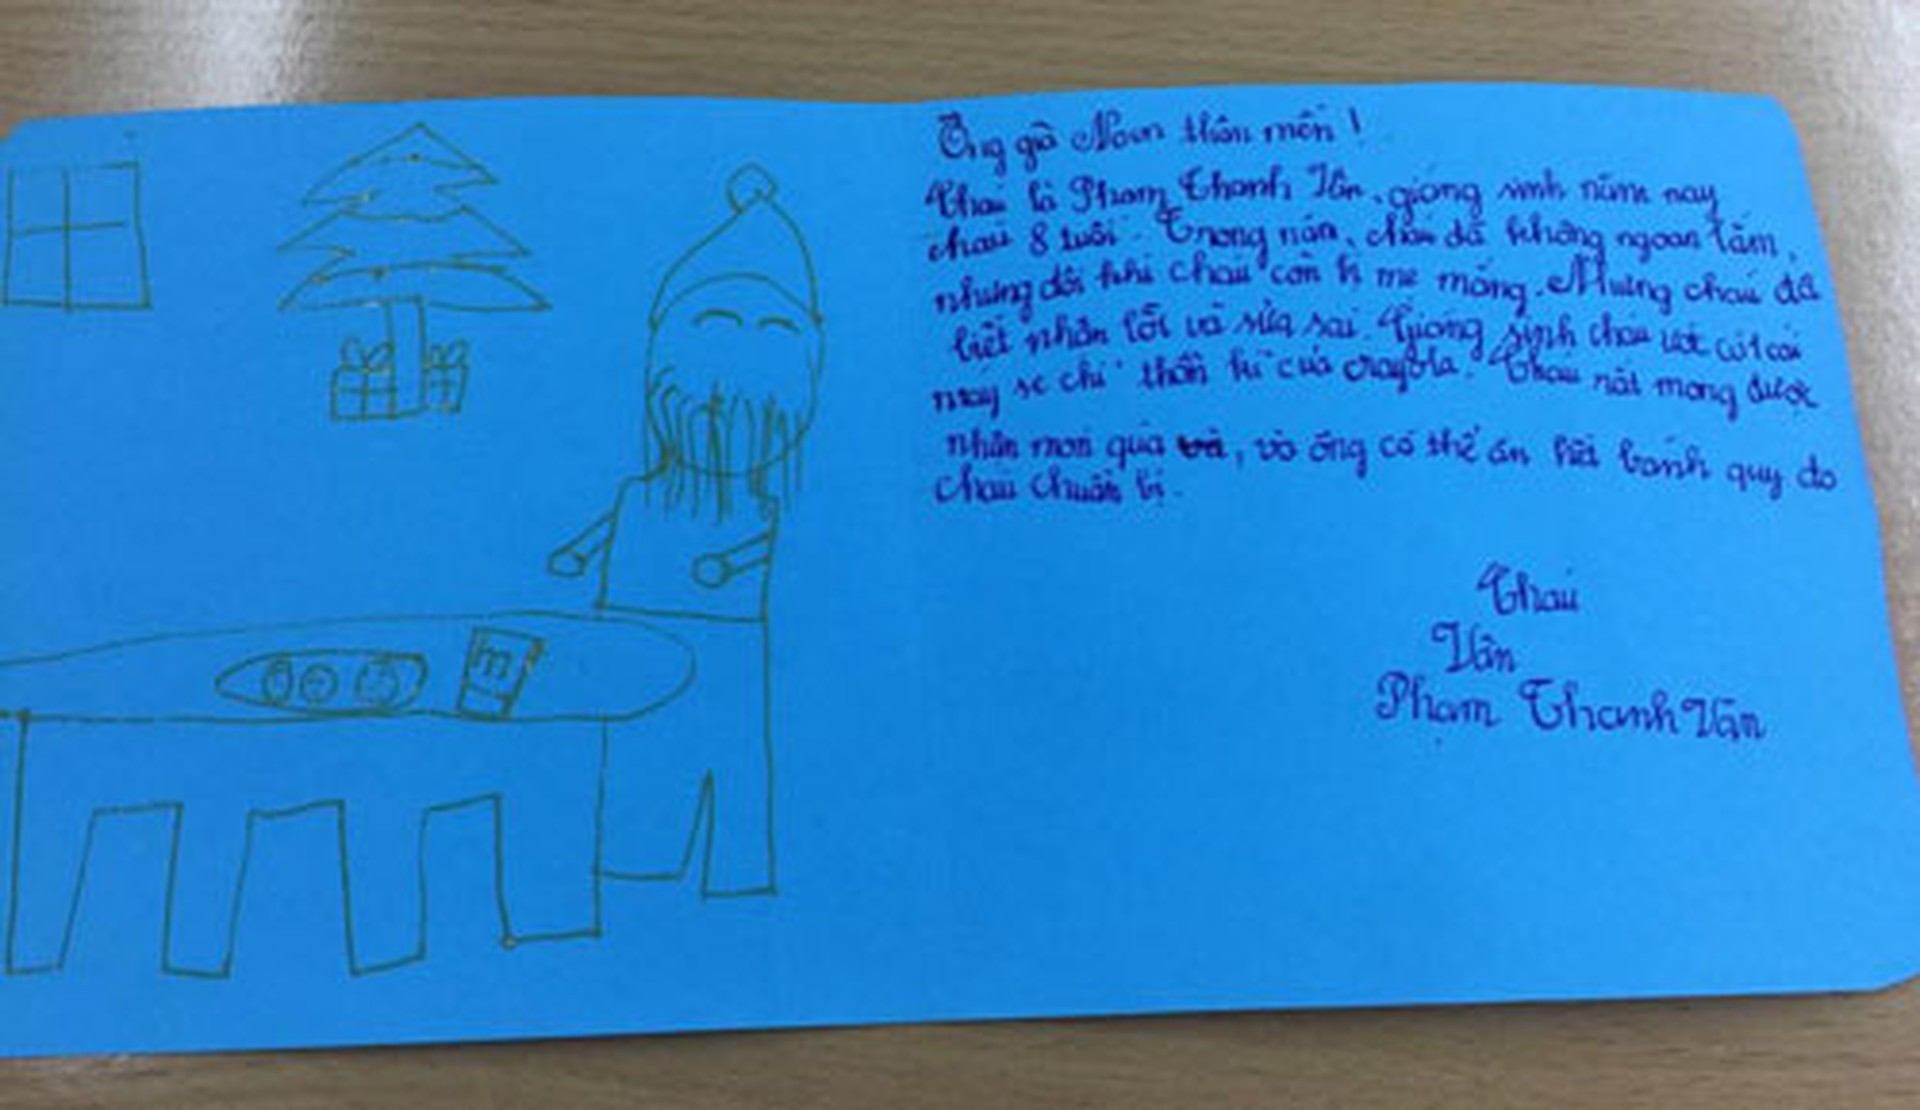 Ông già Noen thân mến !
Cháu là Phạm Thanh Vân, giáng sinh năm nay
cháu 8 tuổi. Trong năm, cháu đã không ngoan lắm,
nhưng đôi khi cháu còn bị mẹ mắng. Nhưng cháu đã
biết nhận lỗi và sửa sai. Giáng sinh cháu ước có 1 cái
máy se chỉ thần kì của crayola. Cháu rất mong được
nhận món quà, và ông có thể ăn hết bánh quy do
cháu chuẩn bị.
Cháu
Vân
Phạm Thanh Vân